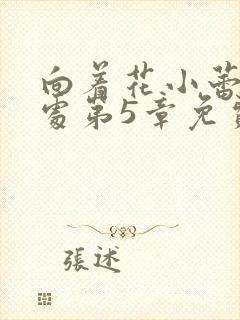 向着花小蕾
处第5章免费
張述